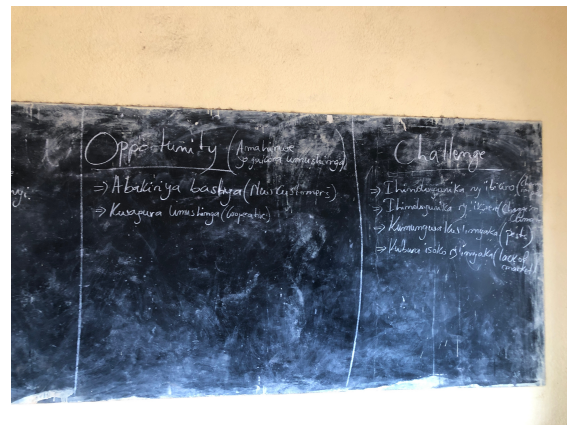 ngi.
Opportunity (Amahirwe
yo gukora umushinga)
⇒ Abakiriya bashya (New customers)
⇒ Kwagura umushinga (Cooperative)
Challenge
⇒ Ihindagurika ry'ibiciro
⇒ Ihindagurika ry'ikirere
⇒ Kumungwa kw'imyaka (pests)
⇒ Kubura isoko ry'imyaka (lack of
market)